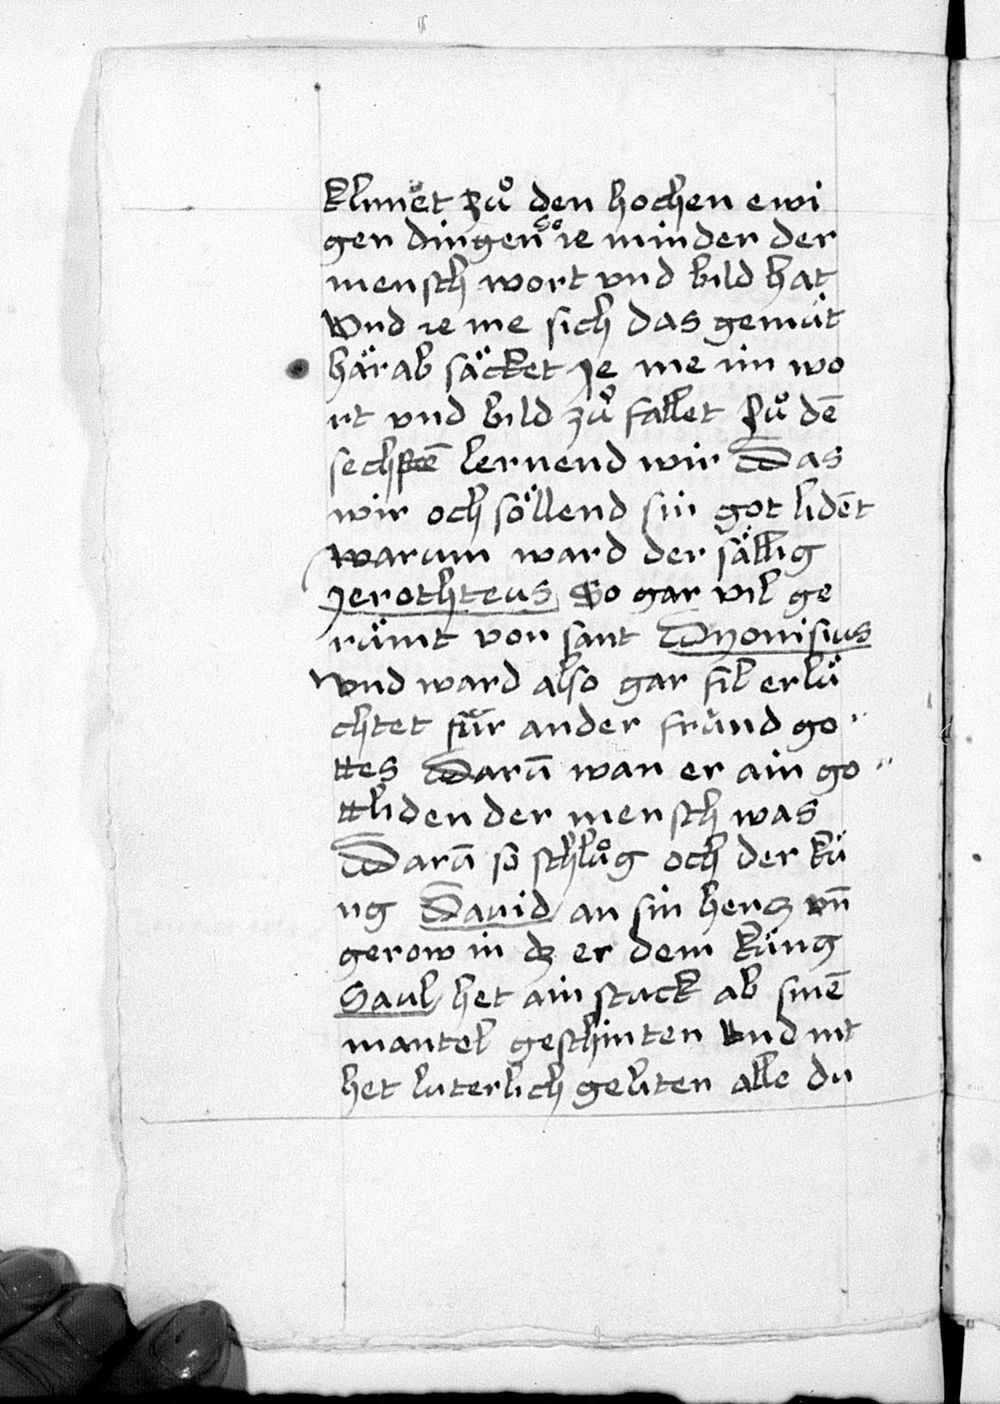 klimet zuͦ den hochen ewi
gen dingen so ie minder der
mensch wort vnd bild hat
Vnd ie me sich das gemuͤt
härab säcket Je me im wo
rt vnd bild zuͦ fallet Zuͦ dē
sechstē lernend wir Das
wir och söllend sin got lidēt
warum ward der sällig
Jerothteus So gar vil ge
rümt von sant Dyonisius
Vnd ward also gar fil erlü
chtet für ander fründ go"
ttes Darū wan er ain go"
ttliden der mensch was
Darū so schluͦg och der kü
ng Dauid an sin hercz vn̄
gerow in dz er dem küng
Saul het ain stuck ab sinē
mantel geschinten Vnd nit
het luterlich geliten alle du